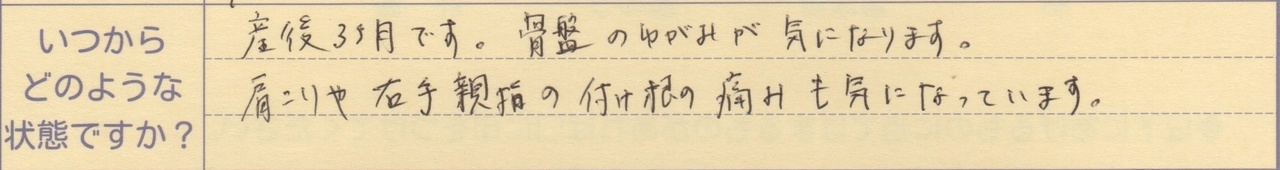 いつから
どのような
状態ですか？
産後3ヶ月です。骨盤のゆがみが気になります。
肩こりや右手親指の付け根の痛みも気になっています。